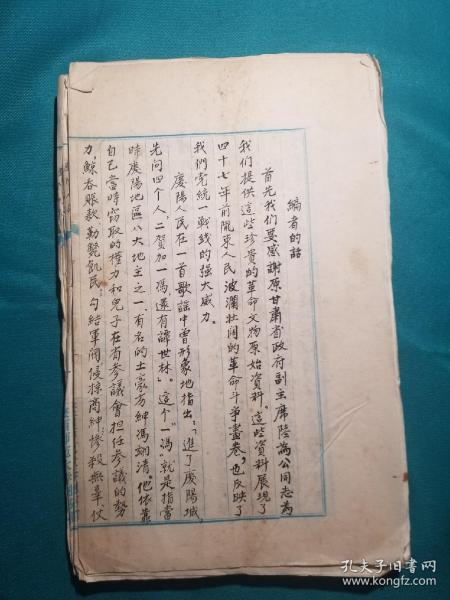 编者的話
首先我们要感謝原甘肃省政府副主席陸為公同志為
我们提供这些珍貴的革命文物原始資料。这些資料展現了
四十七年前隴东人民波瀾壮阔的革命斗争畫卷，也反映了
我們党統一戰綫的强大威力。
慶陽人民在一首歌謡中曾形象地指出：「進了慶陽城，
先问四个人，二賀加一馮，还有譚世林」。这个"馮"就是指當
時慶陽地區八大地主之一、有名的土豪劣紳馮翊清，他依靠
自己當時窃取的權力和兒子在省參議會担任参議的勢
力，鯨吞賬款勒斃飢民；勾結軍阀侵掠商紳惨殺無辜、仗
孔夫子旧书网
www.kongfz.com